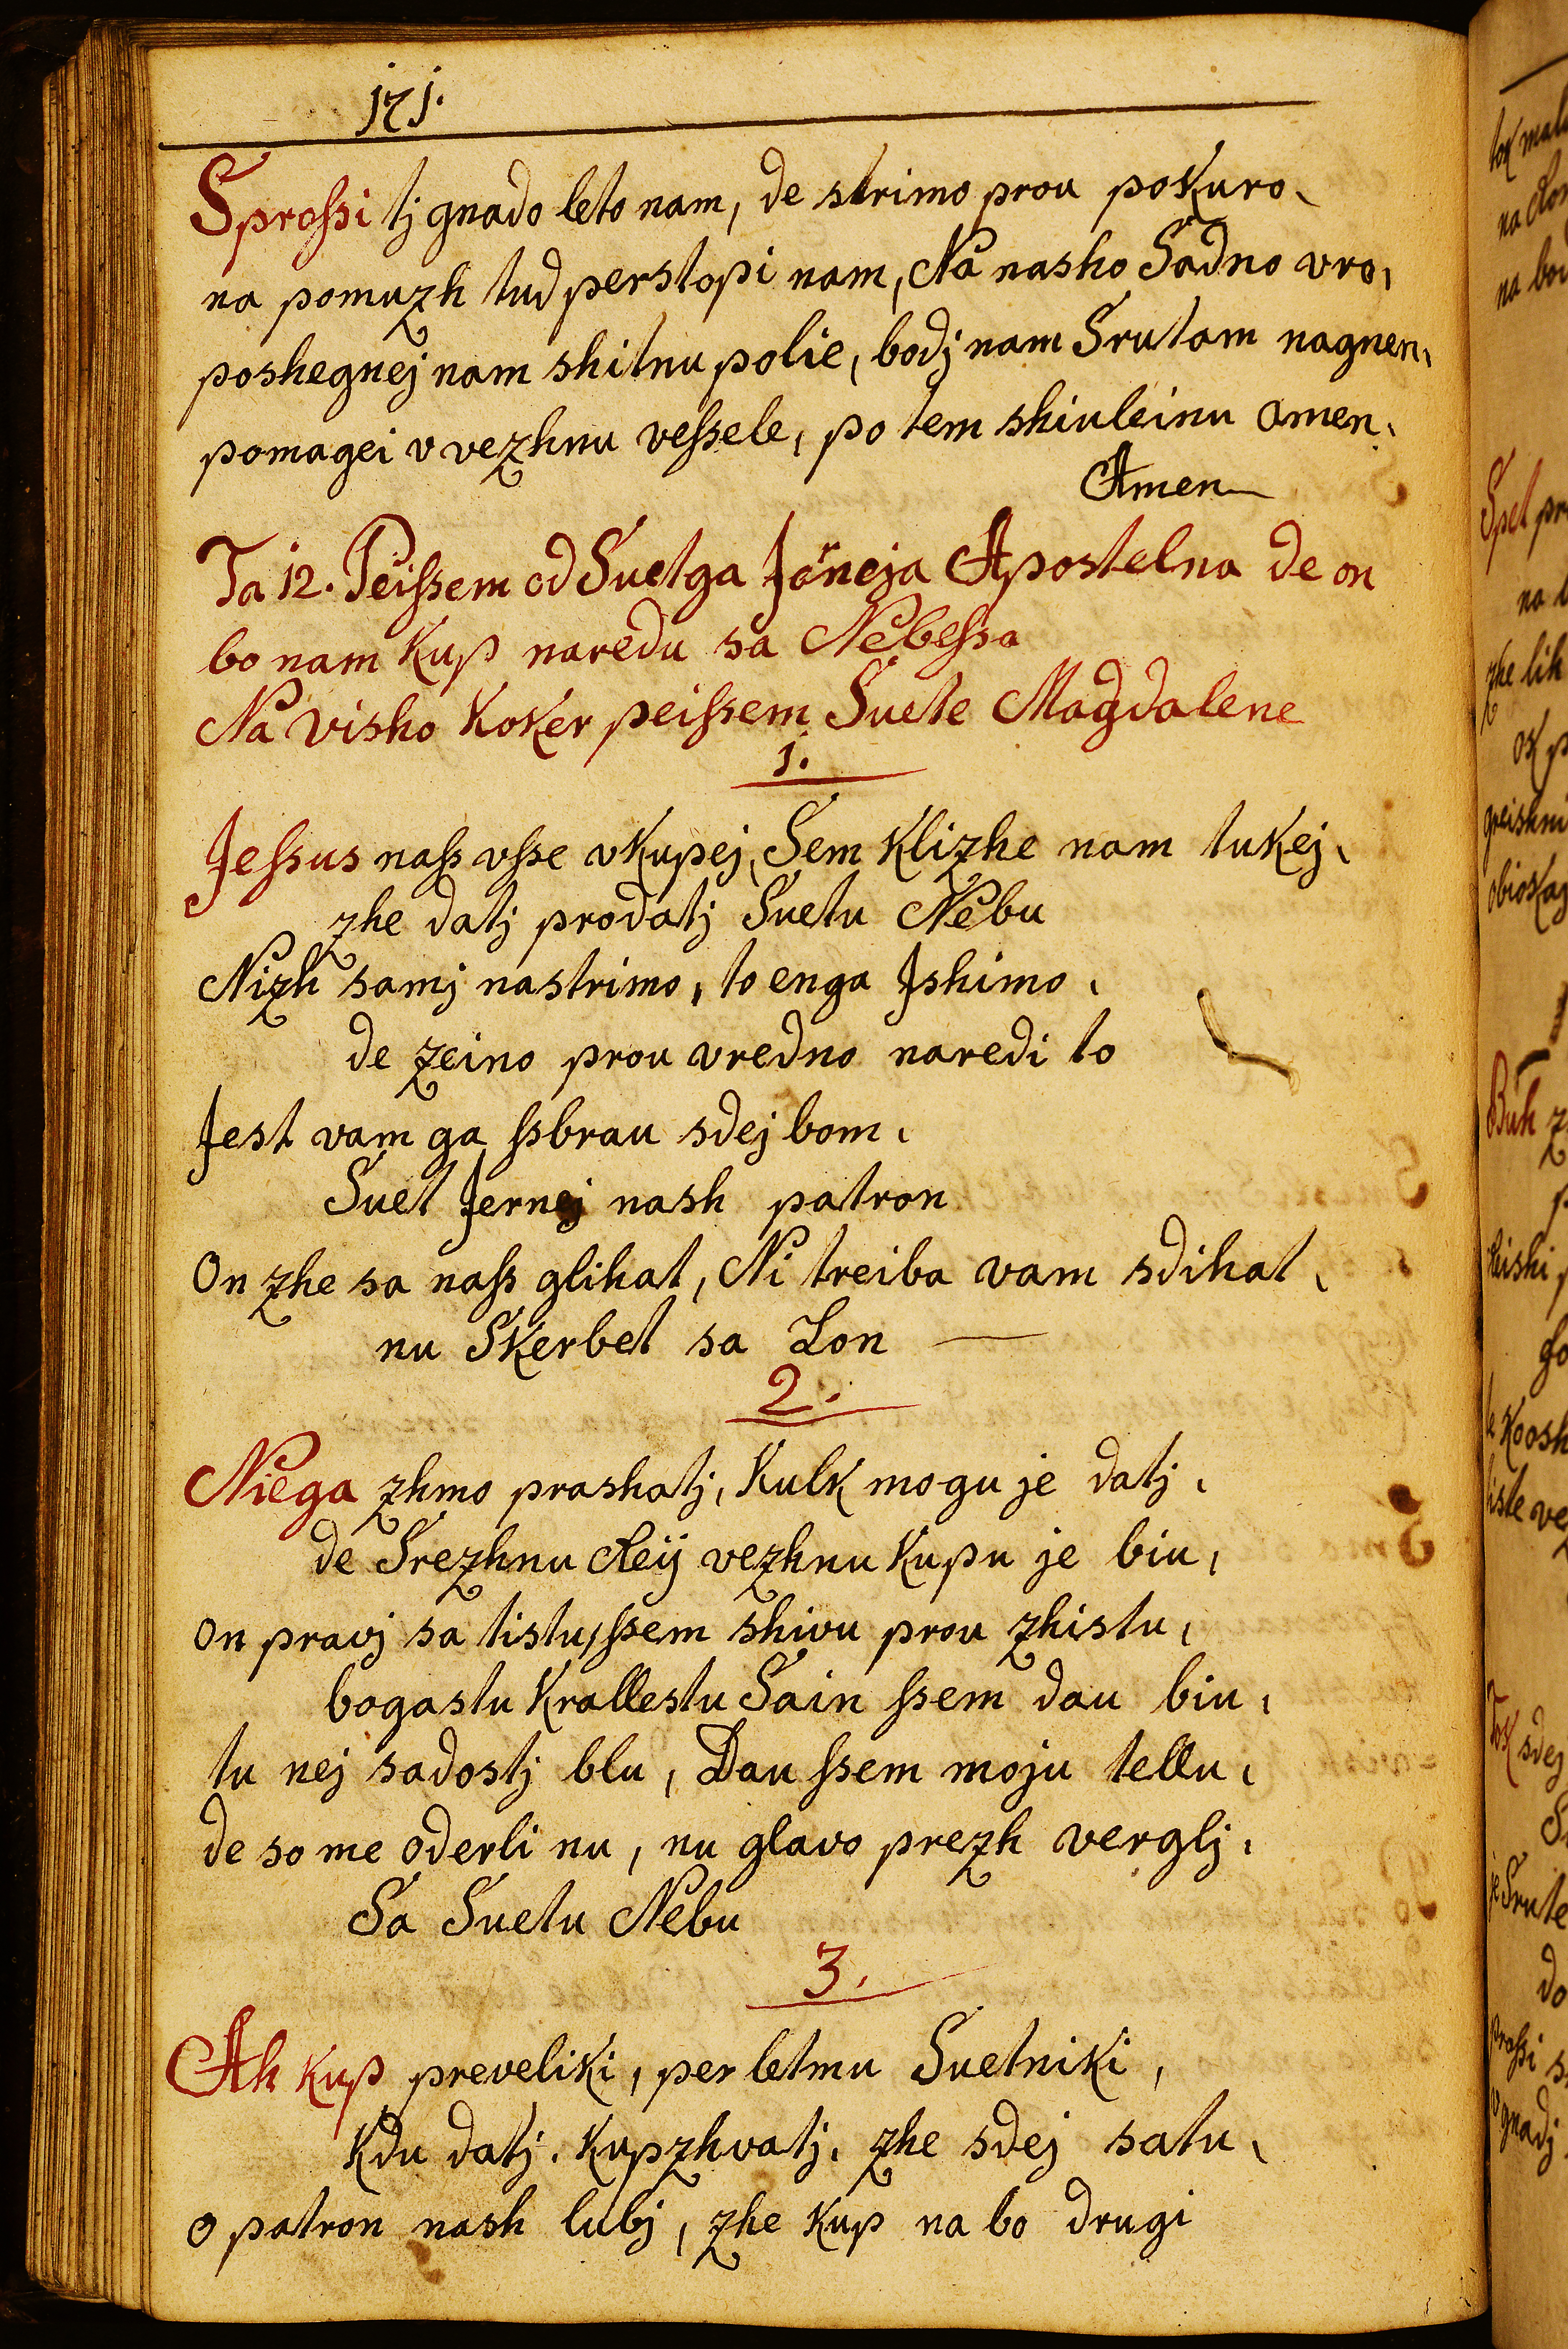 171.
Sproſsi tj gnado leto nam, de strimo prou pokuro,
na pomuzh tud perstopi nam, Na nasho Sadno vro,
poshegnej nam shitnu polie, bodj nam Srutam nagnen,
pomagei v vezhnu veſsele, po tem shiuleinu amen,
Amen
Ta 12. Peiſsem od Suetga Jerneja Apostelna de on
bo nam kup naredu sa Nebeſsa
Na visho koker peiſsem Suete Magdalene
1.
Jeſsus naſs vſse vkupej, Sem klizhe nam tukej,
zhe datj prodatj Suetu Nebu
Nizh samj nastrimo, to enga Jshimo,
de zeino prou vredno naredi to
Jest vam ga ſsbrau sdej bom,
Suet Jernej nash patron
On zhe sa naſs glihat, Ni treiba vam sdihat,
nu Skerbet sa Lon
2.
Niega zhmo prashatj, kulk mogu je datj,
de Srezhnu Reij vezhnu kupu je biu,
on pravj sa tistu, ſsem shivu prou zhistu,
bogastu krallestu Sain ſsem dau biu,
tu nej sadostj blu, Dau ſsem moju tellu,
de so me oderli nu, nu glavo prezh verglj,
Sa Suetu Nebu
3.
Ah kup preveliki, per letmu Suetniki,
kdu datj, kupzhvatj, zhe sdej satu,
o patron nash lubj, zhe kup na bo drugi